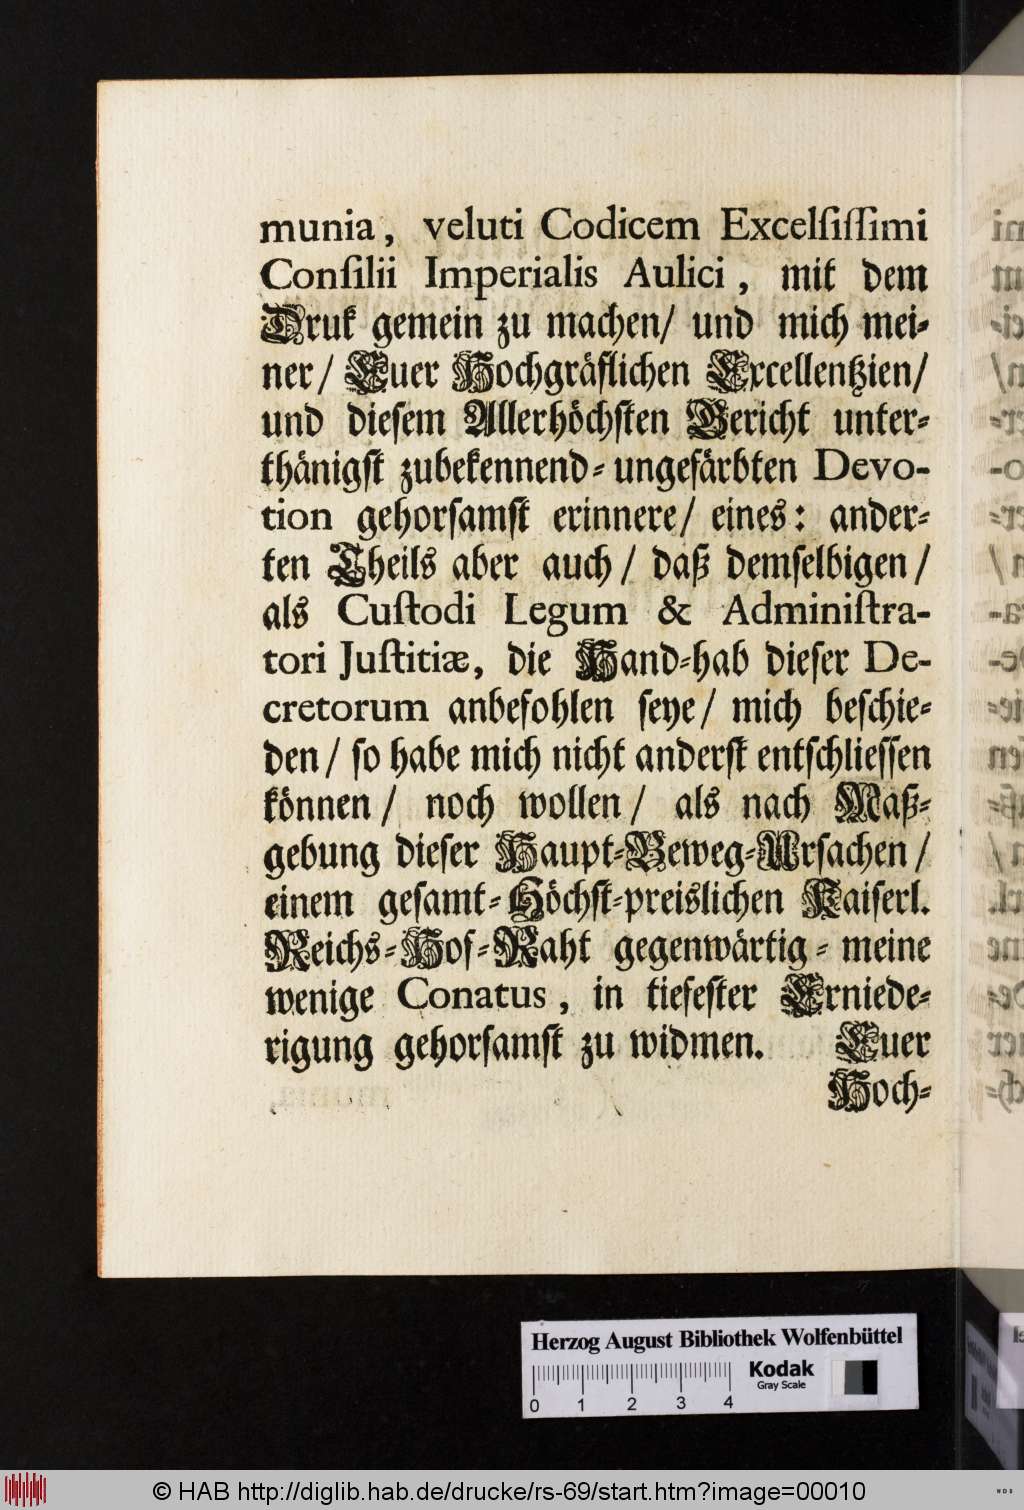 munia, veluti Codicem Excelſiſſimi
Conſilii Imperialis Aulici, mit dem
Druk gemein zu machen/ und mich mei-
ner/ Euer Hochgräflichen Excellentzien/
und dieſem Allerhöchſten Gericht unter-
thänigſt zubekennend-ungefärbten Devo-
tion gehorſamſt erinnere/ eines: ander-
ten Theils aber auch/ daß demſelbigen/
als Cuſtodi Legum & Adminiſtra-
tori Juſtitiæ, die Hand-hab dieſer De-
cretorum anbefohlen ſeye/ mich beſchie-
den/ ſo habe mich nicht anderſt entſchlieſſen
können/ noch wollen/ als nach Maß-
gebung dieſer Haupt-Beweg-Urſachen/
einem geſamt-Höchſt-preislichen Kaiſerl.
Reichs-Hof-Raht gegenwärtig-meine
wenige Conatus, in tiefeſter Erniede-
rigung gehorſamſt zu widmen. Euer
Hoch-
Herzog August Bibliothek Wolfenbüttel
Kodak
Gray Scale
0 1 2 3 4
© HAB http://diglib.hab.de/drucke/rs-69/start.htm?image=00010